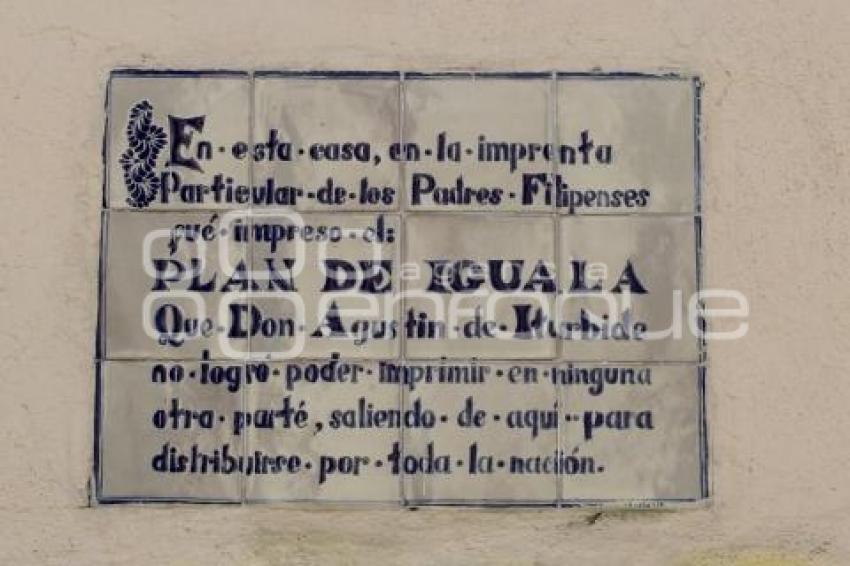 En·esta·casa, en·la·imprenta
Particular·de·los Padres·Filipenses
fué·impreso·el:
PLAN DE IGUALA
Que·Don·Agustin·de·Iturbide
no·logró·poder·imprimir·en·ninguna
otra·parté, saliendo·de·aquí··para
distribuirse·por·toda·la·nación.
agencia
enfoque